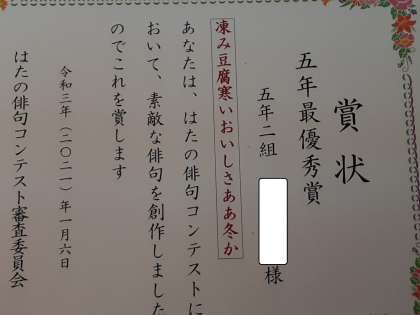 賞状
五年最優秀賞
五年二組
様
凍み豆腐寒いおいしさああ冬か
あなたは、はたの俳句コンテストに
おいて、素敵な俳句を創作しました
のでこれを賞します
令和三年（二〇二一）年一月六日
はたの俳句コンテスト審査委員会